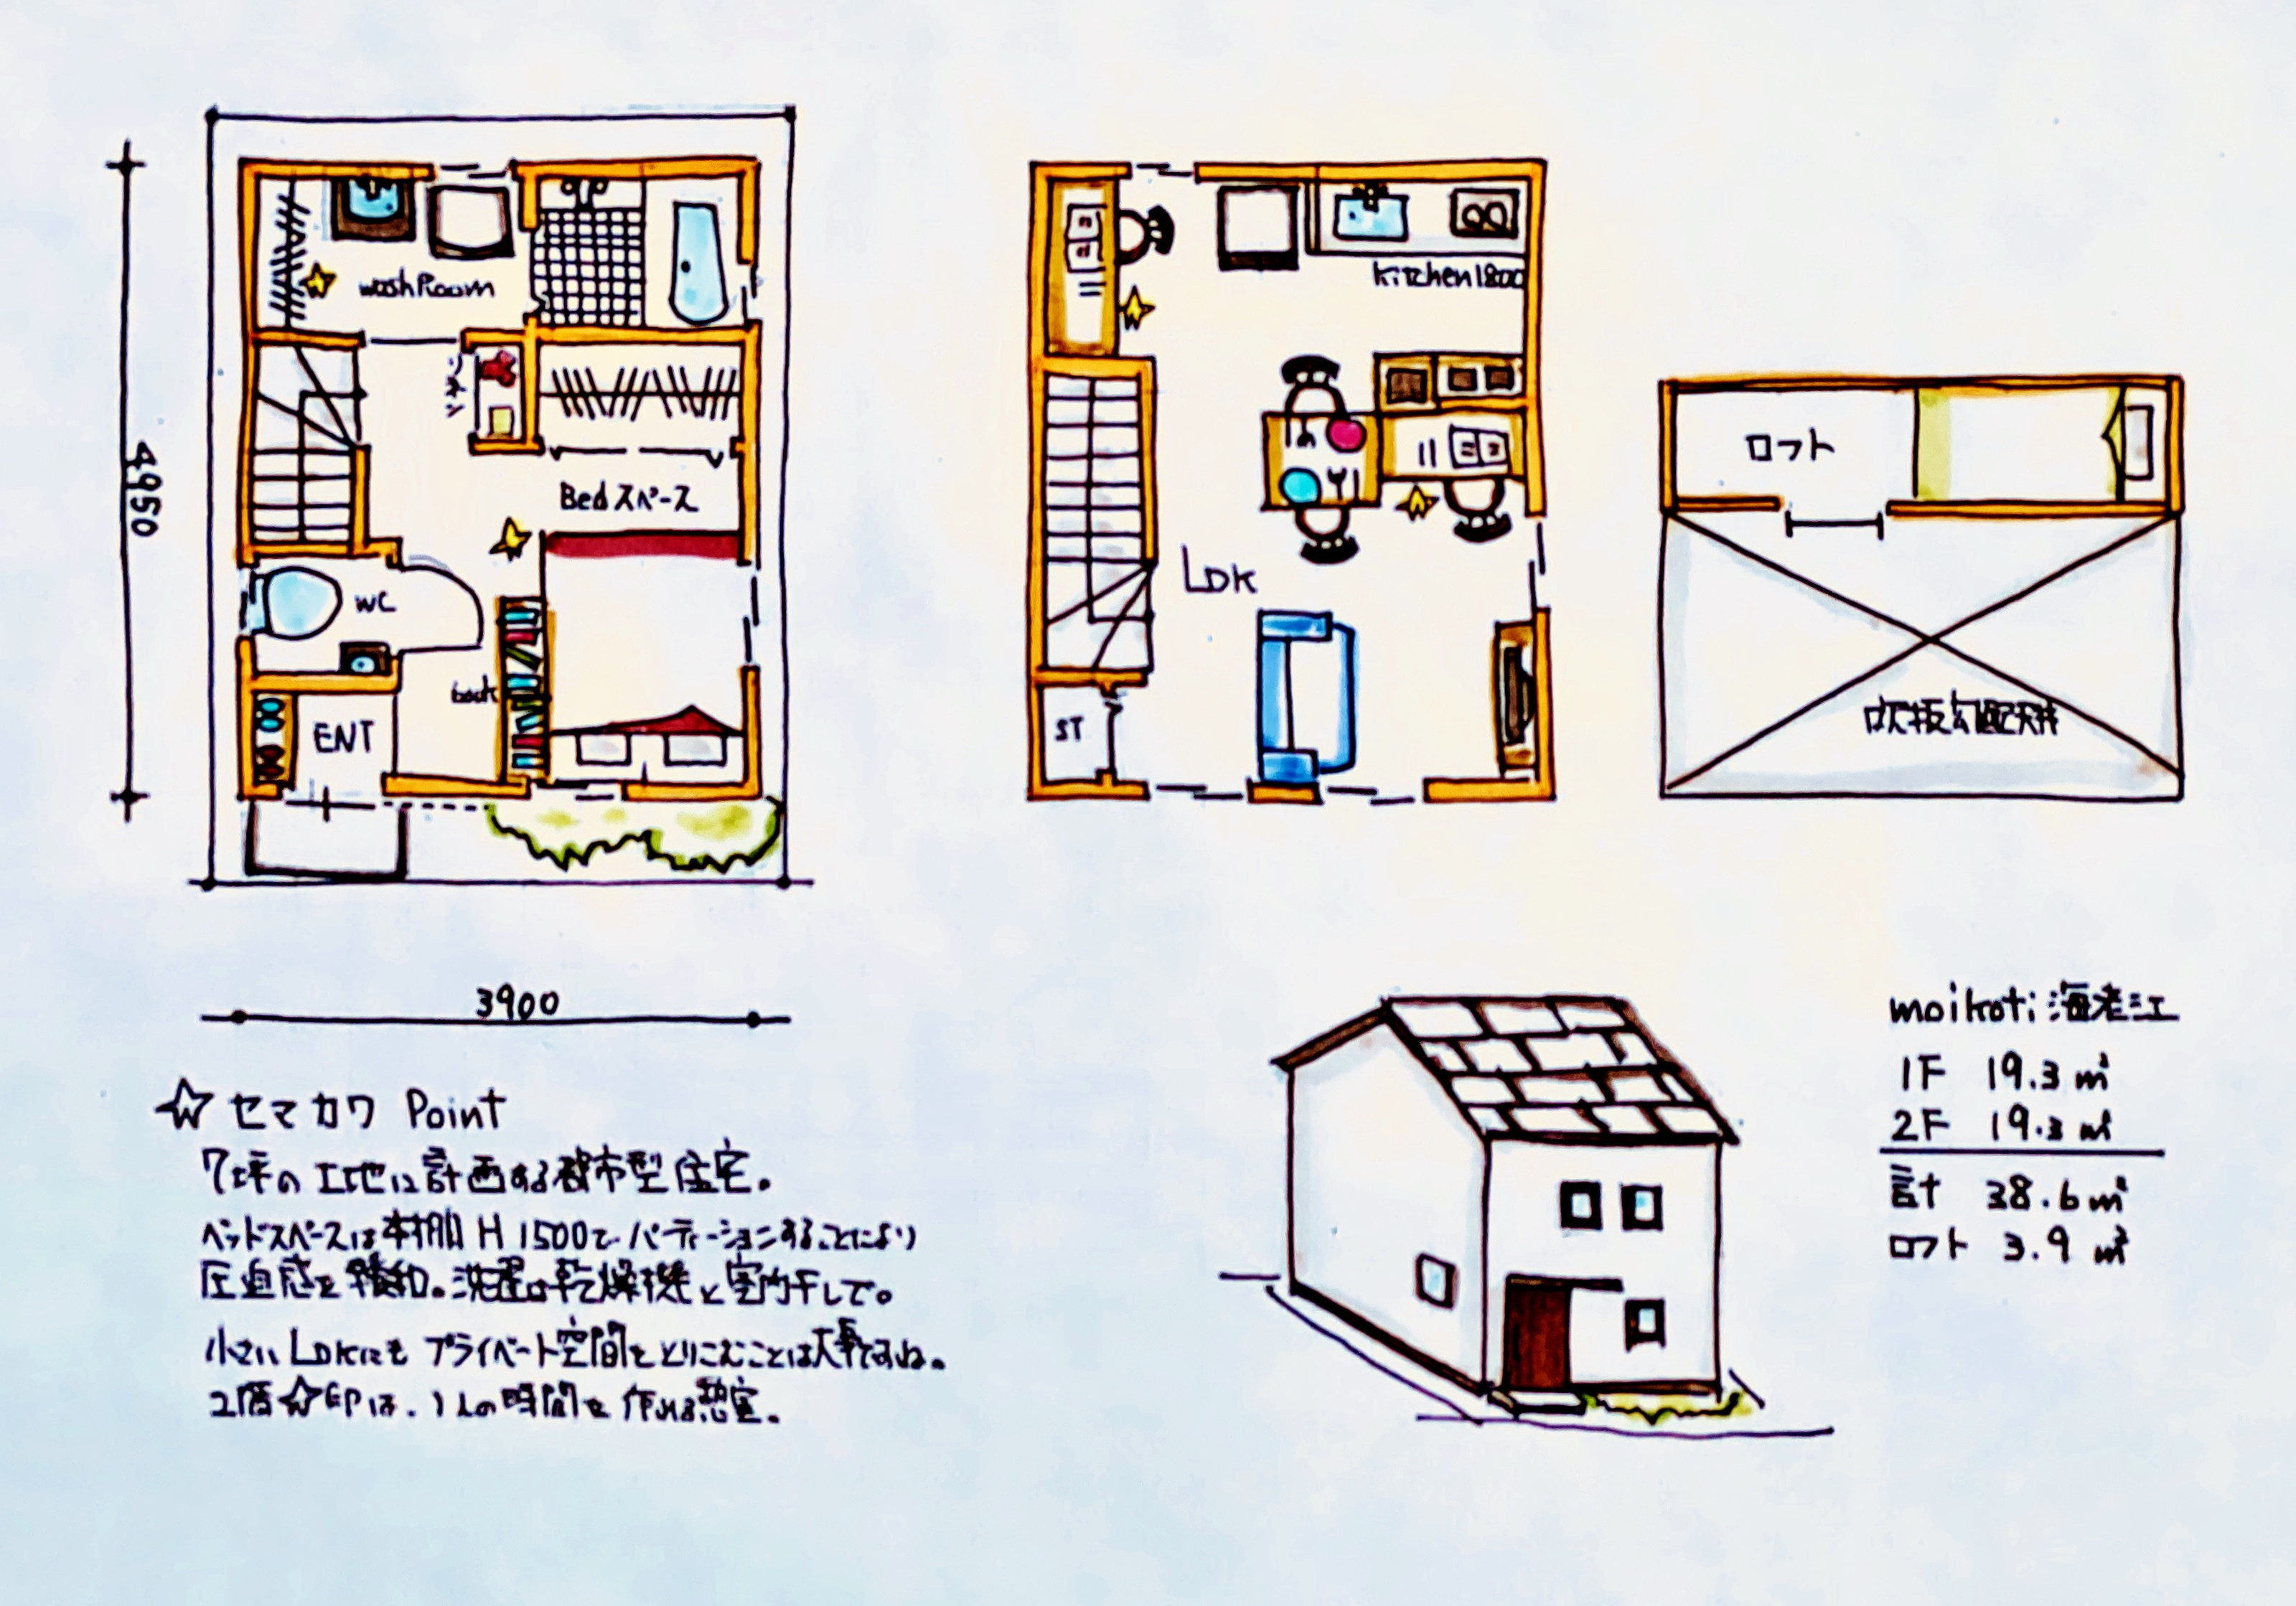 washRoom
リネン
Bedスペース
WC
book
ENT
4950
3900
kitchen1800
LDK
ST
ロフト
吹抜勾配天井
☆ セマカワ Point
7坪の土地に計画する都市型住宅。
ベッドスペースは本棚 H1500でパーティーションすることにより
圧迫感を緩和。洗濯は乾燥機と室内干しで。
小さいLDKにもプライベート空間をとりこむことは大事ですね。
2階☆印は、1人の時間を作れる憩室。
moikoti 海老江
1F 19.3㎡
2F 19.3㎡
計 38.6㎡
ロフト 3.9㎡